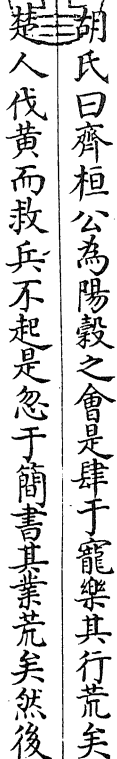 胡氏曰齊桓公為陽穀之會是肆于寵樂其行荒矣
楚人伐黃而救兵不起是忽于簡書其業荒矣然後